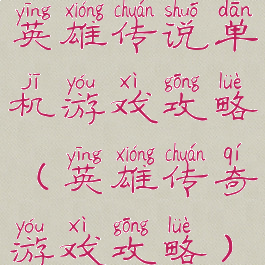 yīng xióng chuán shuō dān
英雄传说单
jī yóu xì gōng lüè
机游戏攻略
yīng xióng chuán qí
（英雄传奇
yóu xì gōng lüè
游戏攻略）